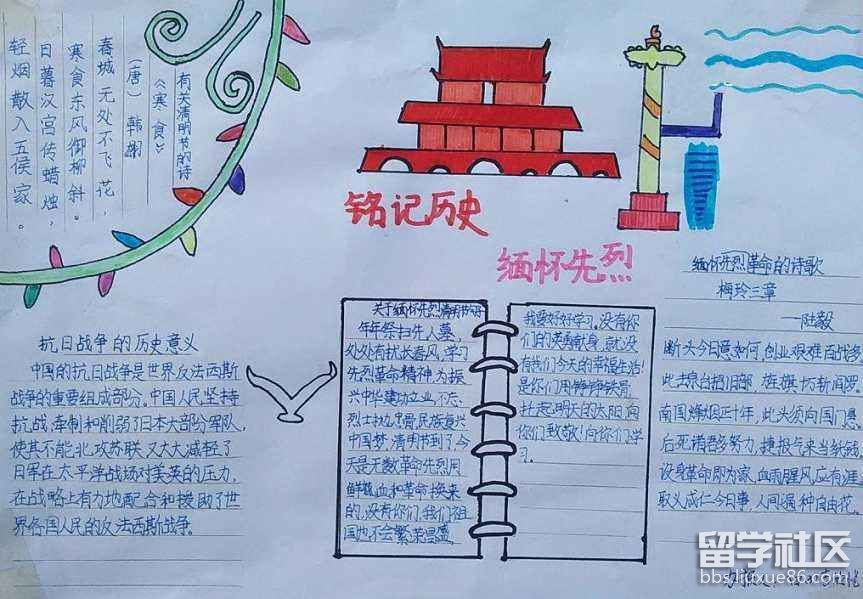 有关清明节的诗
《寒食》
(唐) 韩翃
春城无处不飞花，
寒食东风御柳斜。
日暮汉宫传蜡烛，
轻烟散入五侯家。
铭记历史
缅怀先烈
抗日战争的历史意义
中国的抗日战争是世界反法西斯
战争的重要组成部分。中国人民坚持
抗战，牵制和削弱了日本大部分军队，
使其不能北攻苏联，又大大减轻了
日军在太平洋战场对美英的压力，
在战略上有力地配合和援助了世
界各国人民的反法西斯战争。
关于缅怀先烈清明节
年年祭扫先人墓，
处处有扶长春风，学习
先烈革命精神，为振
兴中华建功立业，不忘
烈士壮忠骨，民族复兴
中国梦，清明节到了，今
天是无数革命先烈用
鲜血和革命换来
的，没有你们，我们祖
国也不会繁荣昌盛，
我要好好学习。没有你
们的英勇献身，就没
有我们今天的幸福生活！
是你们用铮铮铁骨
托起，明天的太阳，向
你们致敬！向你们学
习。
缅怀先烈革命的诗歌
梅玲三章
—陆毅
断头今日意如何，创业艰难百战多
此去泉台招旧部，旌旗
南国烽烟正十年，此头须向国门悬，
后死诸君多努力，捷报飞来当纸钱
设身革命即为家，血雨腥风应有涯
取义成仁今日事，人间遍种自由花。
留学社区
bbs.liuxue86.com